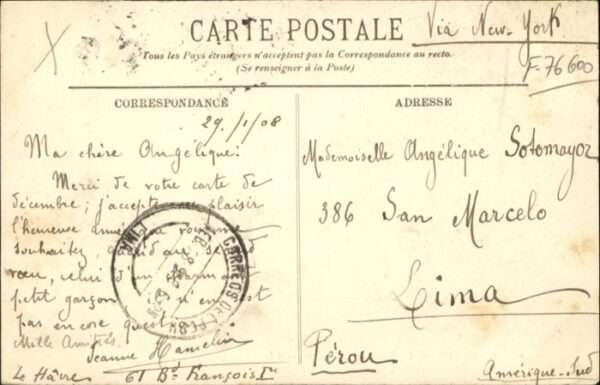 CARTE POSTALE
Via New-York
Tous les Pays étrangers n'acceptent pas la Correspondance au recto.
(Se renseigner à la Poste)
F-76600
CORRESPONDANCE
29/1/08
Ma chère Angélique:
Merci de votre carte de
décembre; j'accepte avec plaisir
l'heureuse année
souhaitez,
vœu, celui d'un
petit garçon n'en est
pas encore question
Mille Amitiés
Jeanne Hamelin
Le Hâvre 61 Bd François Ier
LIMA
CORREOS DEL PERU
ADRESSE
Mademoiselle Angélique Sotomayor
386 San Marcelo
Lima
Pérou
Amérique-Sud